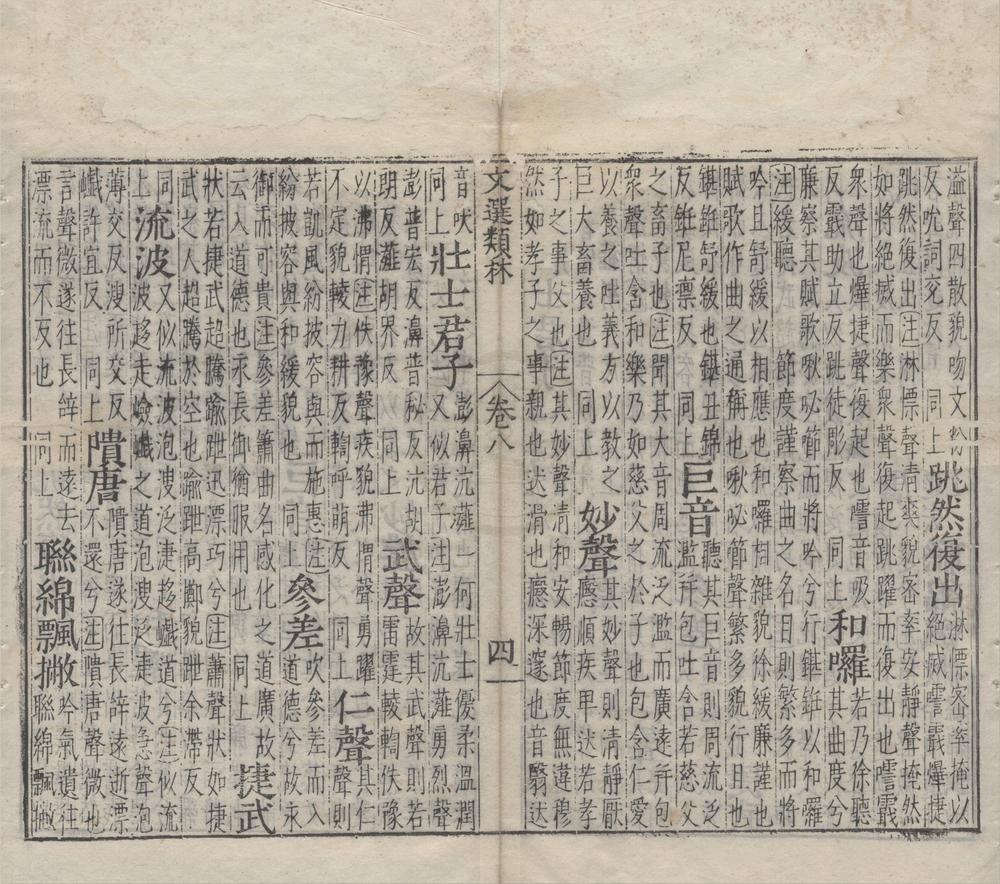 溢聲四散貌吻文粉
反吮詞兖反　同上　跳然復出　淋慓密率掩以絕滅𩆍霵爗捷
跳然復出注淋慓聲清爽貌密率安靜也聲掩然
如將絕滅而樂衆聲復起跳躍而復出也𩆍霵
衆聲也爗捷聲復起也𩆍音吸　若乃徐聽
反霵助立反跳徒彫反　同上　和囉　其曲度兮
廉察其賦歌啾咇節而將吟兮行鍖銋以和囉
注緩聽　節度謹察曲之名目則繁多而將
吟且舒緩以相應也和囉相雜貌徐緩廉謹也
賦歌作曲之通稱也啾咇節聲繁多貌行且也
鍖銋舒緩也鍖丑錦
反銋尼禀反　同上　巨音　聽其巨音則周流泛濫并包吐含若慈父
之畜子也注聞其大音周流乏濫而廣遠并包
衆聲吐含和樂乃如慈父之於子也包含仁愛
以養之吐義方以教之
巨大畜養也　同上　妙聲　其妙聲則清靜厭㥷順疾卑达若孝
子之事父也注其妙聲清和安暢節度無違穆
然如孝子之事親也达滑也㥷深邃也音翳达
文選類林
卷八
四
音吠
同上　壯士君子　澎濞沆漑一何壯士優柔温潤又似君子注澎濞沆漑勇烈聲
澎普宏反濞普秘反沆胡
朗反漑胡界反　同上　武聲　故其武聲則若雷霆輘輷佚豫
以沸㥜注佚豫聲疾貌沸㥜聲勇躍
不定貌輘力耕反輷呼萌反　同上　仁聲　其仁聲則
若凱風紛披容與而施惠注
紛披容與和緩貌也　同上　參差　吹參差而入道德兮故永
御而可貴注參差簫曲名感化之道廣故
云入道德也永長御猶服用也　同上　捷武
狀若捷武超騰踰跇迅漂巧兮注蕭聲狀如捷
武之人超騰於空也踰跇高鄺貌跇余滯反
同上　流波　又似流波泡溲泛㳧趨巇道兮注似流
波趍走嶮巇之道泡溲泛㳧波急聲泡
薄交反溲所交反
巇許宜反　同上　隤唐　不還兮注隤唐聲微也隤唐遂往長辭遠逝漂
言聲微遂往長辝而遠去
漂流而不反也　同上　聯綿飄撇　吟氣遺往聯綿飄撇